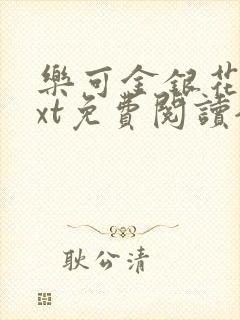 樂可金銀花
xt免費閱讀
耿公清